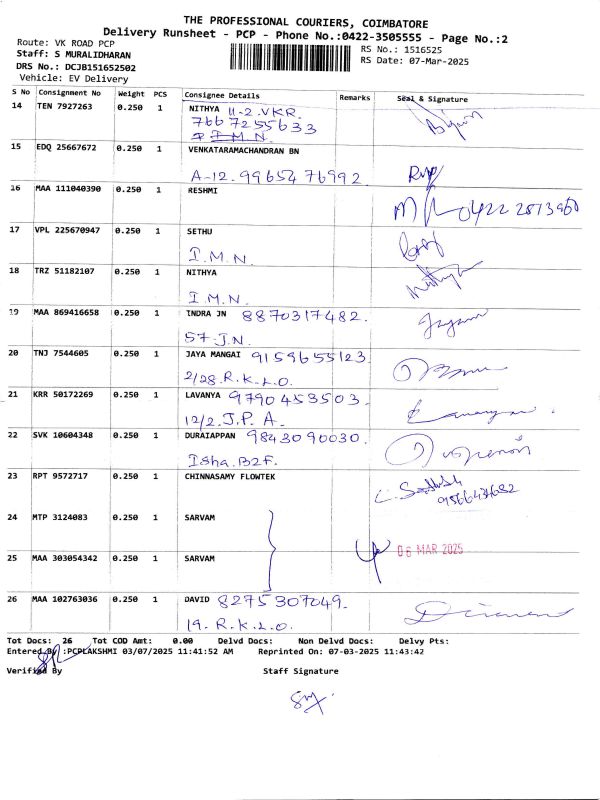 THE PROFESSIONAL COURIERS, COIMBATORE
Delivery Runsheet - PCP - Phone No.:0422-3505555 - Page No.:2
Route: VK ROAD PCP
Staff: S MURALIDHARAN
DRS No.: DCJB151652502
Vehicle: EV Delivery
RS No.: 1516525
RS Date: 07-Mar-2025
S No Consignment No Weight PCS Consignee Details Remarks Seal & Signature
14 TEN 7927263 0.250 1 NITHYA 11-2. VKR.
7667255633
I.M.N.
15 EDQ 25667672 0.250 1 VENKATARAMACHANDRAN BN
A-12. 9965476992
16 MAA 111040390 0.250 1 RESHMI
0422 2513960
17 VPL 225670947 0.250 1 SETHU
I.M.N.
18 TRZ 51182107 0.250 1 NITHYA
I.M.N. Nithya
19 MAA 869416658 0.250 1 INDRA JN 8870317482.
57. J.N.
20 TNJ 7544605 0.250 1 JAYA MANGAI 9159655123
2/28. R.K.L.O.
21 KRR 50172269 0.250 1 LAVANYA 9790453503.
12/2. J.P.A.
22 SVK 10604348 0.250 1 DURAIAPPAN 9843090030.
Isha. B2F.
23 RPT 9572717 0.250 1 CHINNASAMY FLOWTEK
24 MTP 3124083 0.250 1 SARVAM
06 MAR 2025
25 MAA 303054342 0.250 1 SARVAM
26 MAA 102763036 0.250 1 DAVID 8275307049.
19. R.K.L.O.
Tot Docs: 26 Tot COD Amt: 0.00 Delvd Docs: Non Delvd Docs: Delvy Pts:
Entered By :PCPLAKSHMI 03/07/2025 11:41:52 AM Reprinted On: 07-03-2025 11:43:42
Verified By Staff Signature